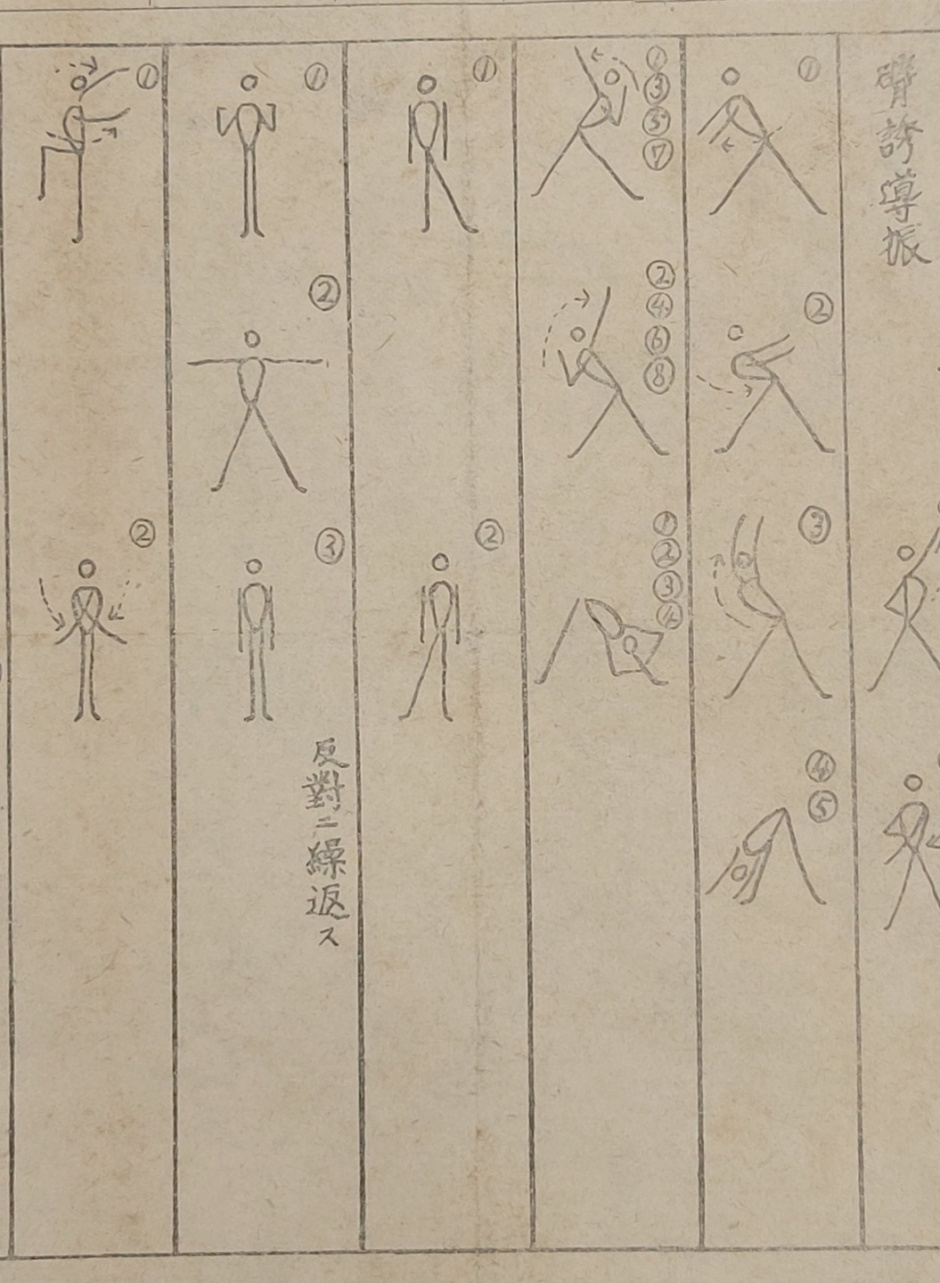 臂誘導振
①
②
③
④
⑤
①
③
⑤
⑦
②
④
⑥
⑧
①
②
③
④
①
②
①
②
③
反對ニ繰返ス
①
②